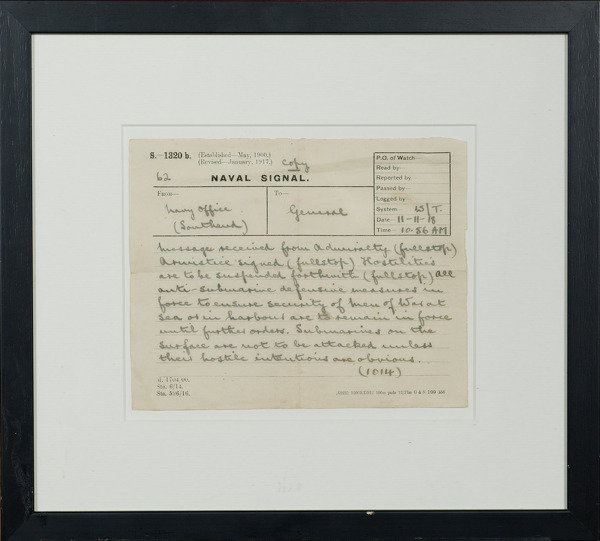 S.—1320 b. (Established—May, 1900.)
(Revised—January, 1917.)
Copy
62
NAVAL SIGNAL.
P.O. of Watch—
Read by—
Reported by—
Passed by—
Logged by—
System— W/T.
Date— 11-11-18
Time— 10.56 AM
From— Navy Office
(Southend)
To— General
Message received from Admiralty (fullstop)
Armistice signed (fullstop) Hostilities
are to be suspended forthwith (fullstop) All
anti-submarine defensive measures in
force to ensure security of Men of War at
sea or in harbour are to remain in force
until further orders. Submarines on the
surface are not to be attacked unless
their hostile intentions are obvious.
(1014)
Sta. 6/14.
Sta. 516/16.